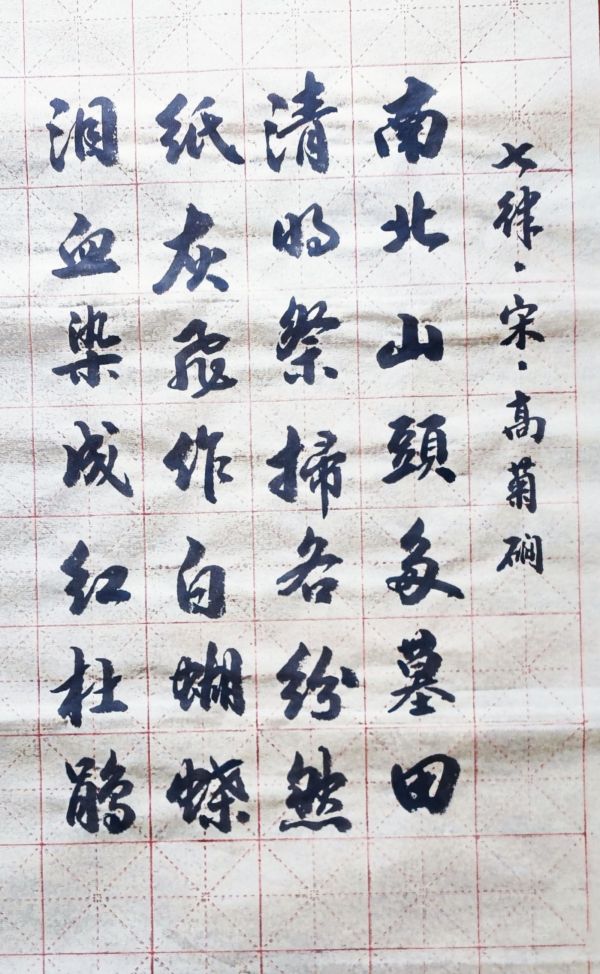 七律·宋·高菊磵
南北山頭多墓田
清明祭掃各紛然
紙灰飛作白蝴蝶
泪血染成紅杜鵑